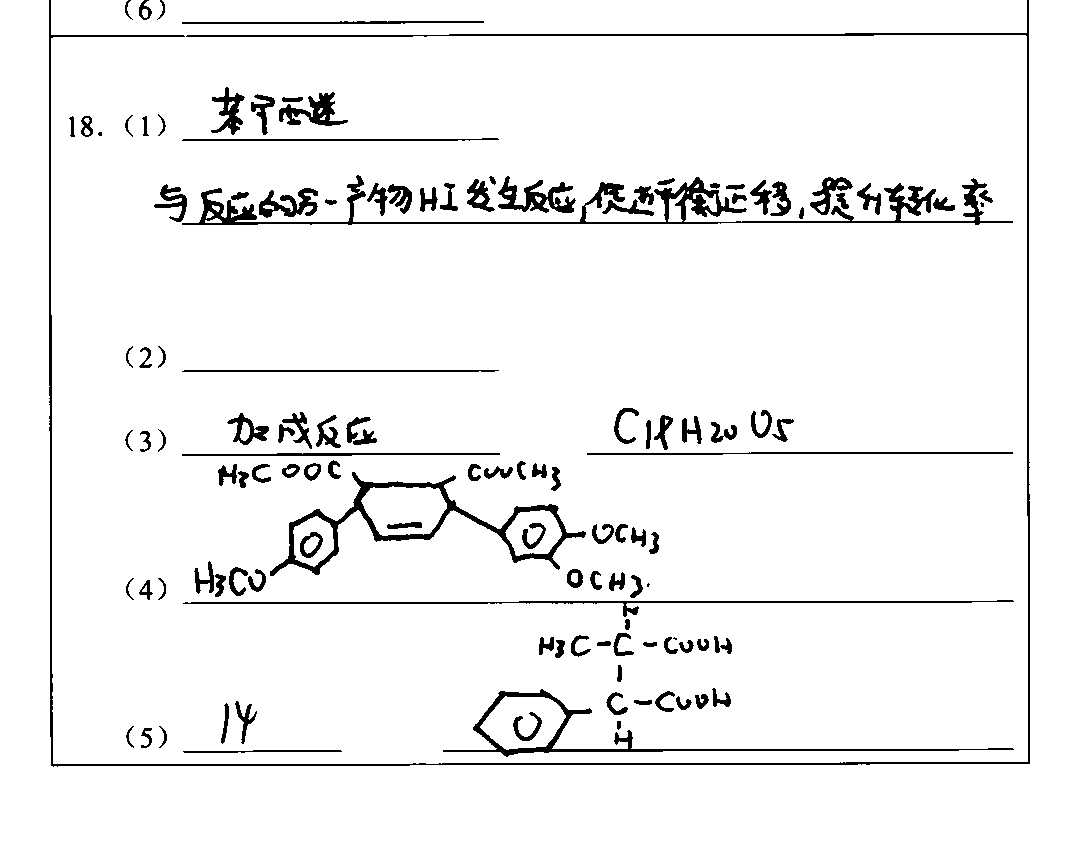 (6)
18. (1) 苯甲醚
与反应的另一产物HI发生反应,促进平衡正移,提升转化率
(2)
(3) 加成反应 C18H20O5
H3COOC COOCH3
OCH3
(4) H3CO OCH3
H
H3C-C-COOH
C-COOH
(5) 14 H